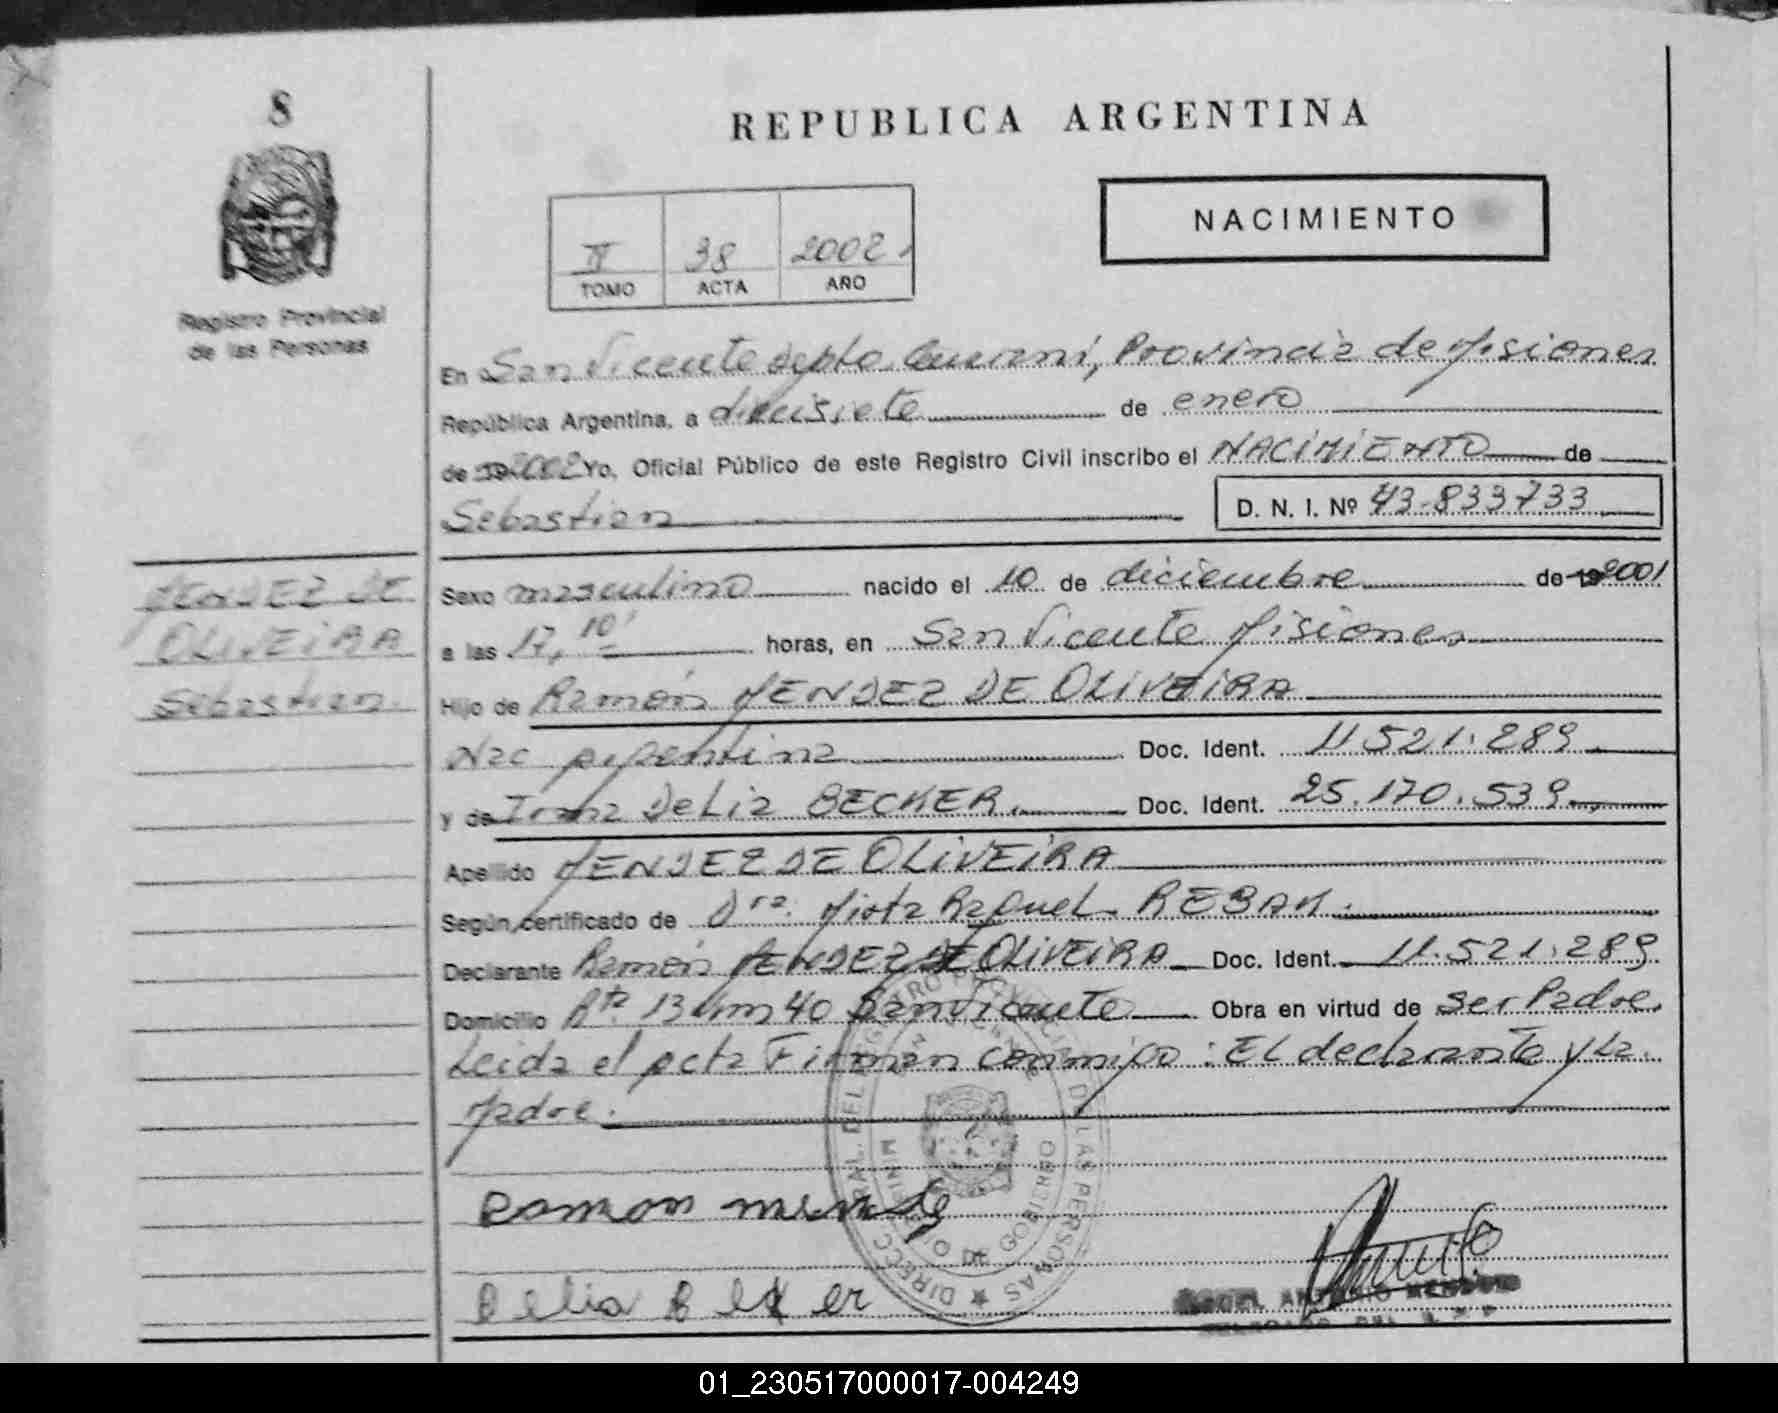 8
REPUBLICA ARGENTINA
NACIMIENTO
II 38 2002
TOMO ACTA AÑO
Registro Provincial
de las Personas
En San Vicente depto. Guarani, Provincia de Misiones
República Argentina, a diecisiete de enero
de 2002 Yo, Oficial Público de este Registro Civil inscribo el NACIMIENTO de
Sebastian D. N. I. Nº 43-833733
MENDEZ DE
OLIVEIRA
Sebastian.
Sexo masculino nacido el 10 de diciembre de 2001
a las 17,10' horas, en San Vicente Misiones
Hijo de Ramón MENDEZ DE OLIVEIRA
Nac argentina Doc. Ident. 11.521.289
y de Delia BECKER. Doc. Ident. 25.170.539
Apellido MENDEZ DE OLIVEIRA
Según certificado de Dra. Mirta Raquel REBAK.
Declarante Ramón MENDEZ DE OLIVEIRA Doc. Ident. 11.521.289
Domicilio Rta. 13 km 40 San Vicente Obra en virtud de ser Padre.
Leida el acta Firman conmigo: El declarante y La
Madre.
DIRECC. GRAL. DEL REGISTRO PROVINCIAL DE LAS PERSONAS
MINISTERIO DE GOBIERNO
Ramon mende
Delia Beker
ANTONIO
01_230517000017-004249